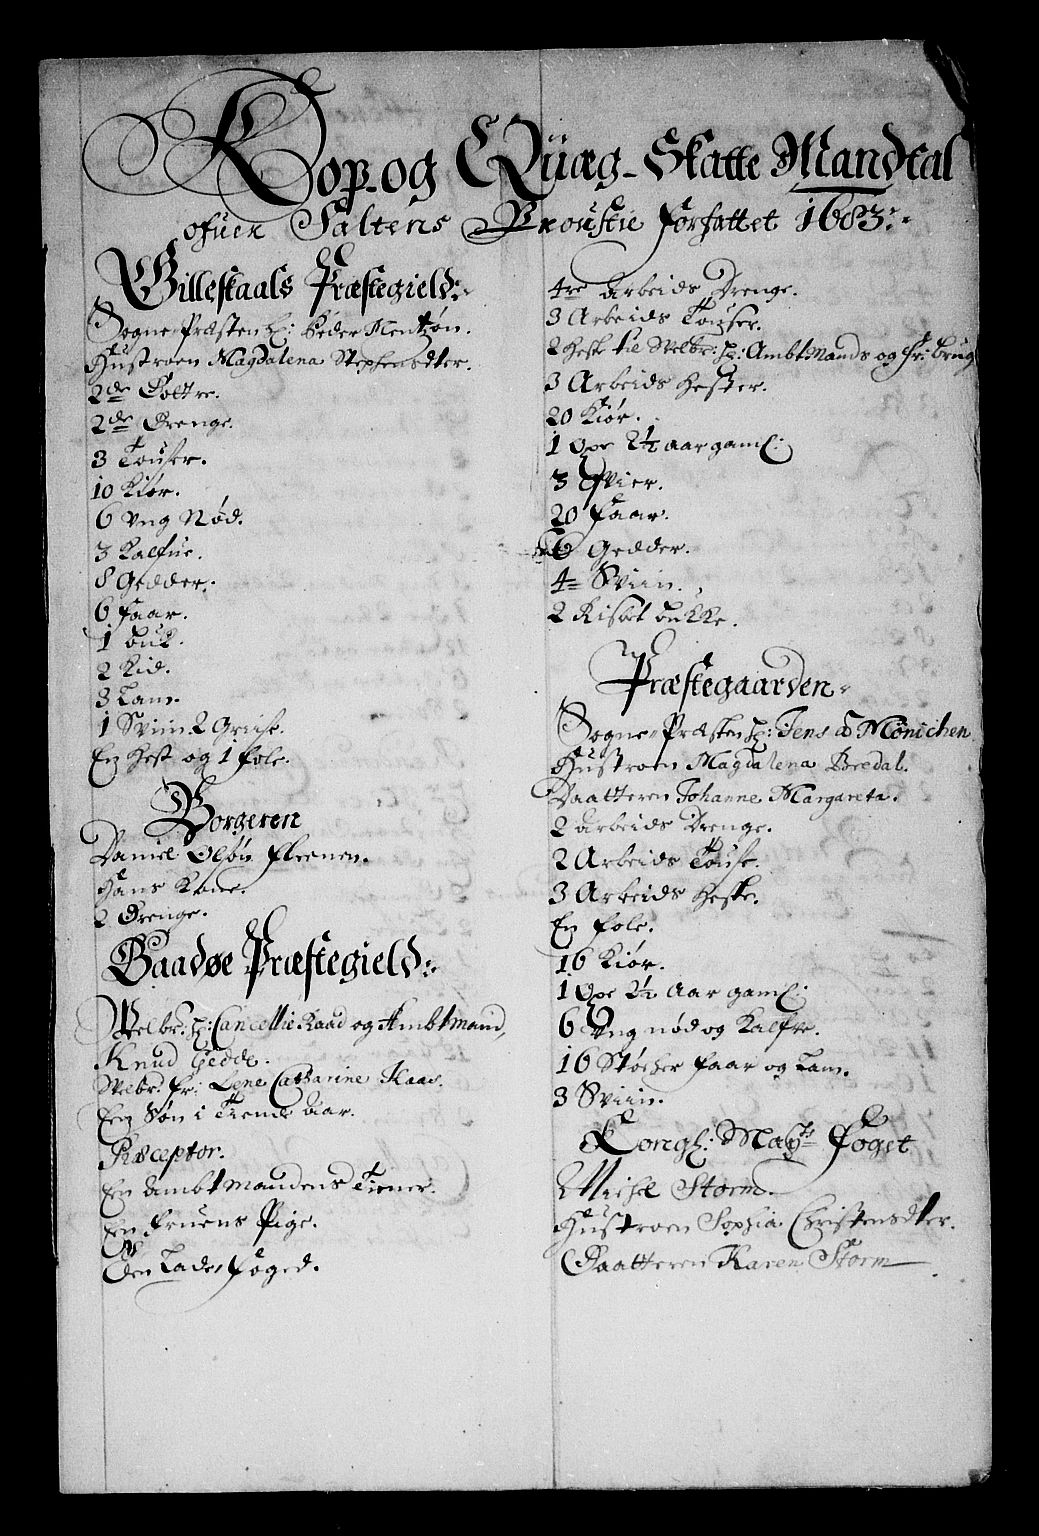 Kop-og Qüæg-Skatte Mandtal
ofuer Saltens Proustie forfattet 1683.
Gilleskaals Præstegield:
Sogne-Præsten H: Peder Mentzøn.
Hustroen Magdalena Stephensdter.
2de Døttre.
2de Drenge.
3 Touser.
10 Kiør.
6 Vng Nød.
3 Kalfue.
8 Gedder.
6 Faar.
1 buk.
2 Kid.
3 Lam.
1 Sviin. 2 Griise.
En Hest og 1 fole.
Borgeren
Daniel Olsøn
Hans Kone.
2 Drenge.
Baadøe Præstegield:
Welbr: H: Cancellie Raad og Ambtmand,
Knud Gedde.
Welbr. Fr: Lene Catharine Kaas.
Een Søn i Tiende Aar.
Præceptor.
En Ambtmandens Tiener.
En Fruens Pige.
Een Lade-foged.
4re Arbeids Drenge.
3 Arbeids Touser.
2 Heste til Welbr: H: Ambtmands og Fr: brug
3 Arbeids Hester.
20 Kiør.
1 Oxe 2½ aar gaml:
3 Qvier.
20 Faar.
6 Gedder.
4re Sviin.
2 bukke.
Præstegaarden
Sogne-Præsten H: Jens Mönichen
Hustroen Magdalena Bredal.
Daatteren Johanne Margareta.
2 Arbeids Drenge.
2 Arbeids Touse.
3 Arbeids Heste.
En fole.
16 Kiør.
1 Oxe 2½ Aar gaml:
6 Vng nød og Kalfve.
16 Støcher Faar og Lam.
3 Sviin.
Congl: Mayts Foget
Michel Storm.
Hustroen Sophia Christensdter.
Daatteren Karen Storm